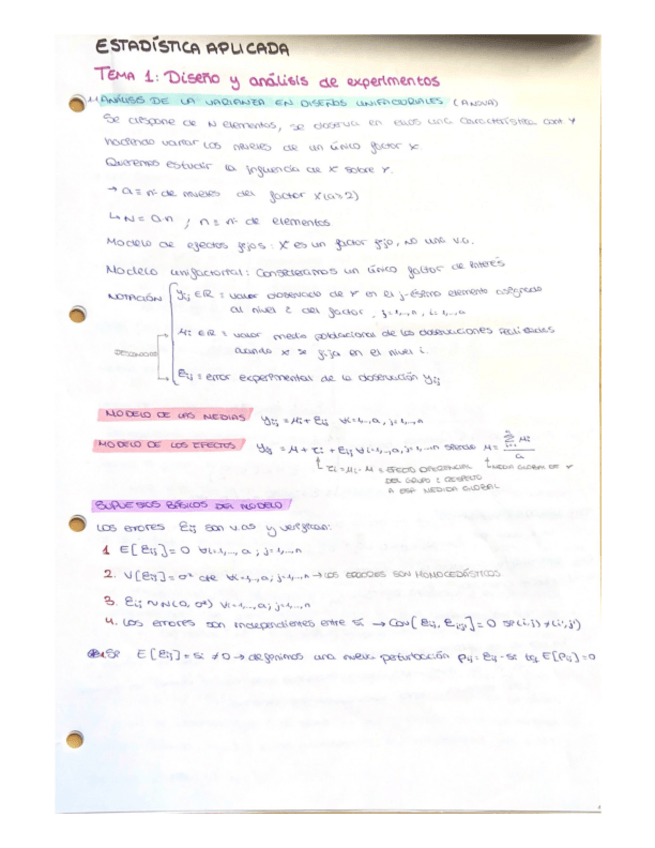 ESTADÍSTICA APLICADA
TEMA 1: Diseño y análisis de experimentos
1. ANÁLISIS DE LA VARIANZA EN DISEÑOS UNIFACTORIALES (ANOVA)
Se dispone de N elementos, se observa en ellos una característica cont. Y
haciendo variar los niveles de un único factor X.
Queremos estudiar la influencia de X sobre Y.
→ a = nº de niveles del factor X (a≥2)
↳ N = an ; n = nº de elementos
Modelo de efectos fijos: X es un factor fijo, no una v.a.
Modelo unifactorial: Consideramos un único factor de interés
NOTACIÓN { yij ∈ R = valor observado de Y en el j-ésimo elemento asignado
al nivel i del factor, j=1,...,n, i=1,...,a
μi ∈ R = valor medio poblacional de las observaciones realizadas
DESCONOCIDOS cuando X se fija en el nivel i.
Eij = error experimental de la observación yij
MODELO DE LAS MEDIAS yij = μi + Eij ∀i=1,...,a, j=1,...,n
MODELO DE LOS EFECTOS yij = μ + τi + Eij ∀i=1,...,a, j=1,...,n siendo μ = Σ μi / a
↳ τi = μi - μ = EFECTO DIFERENCIAL ↳ MEDIA GLOBAL DE Y
DEL GRUPO i RESPECTO
A ESA MEDIDA GLOBAL
SUPUESTOS BÁSICOS DEL MODELO
Los errores Eij son v.as y verifican:
1. E[Eij] = 0 ∀i=1,...,a; j=1,...,n
2. V[Eij] = σ² cte ∀i=1,...,a; j=1,...,n → LOS ERRORES SON HOMOCEDÁSTICOS
3. Eij ~ N(0, σ²) ∀i=1,...,a; j=1,...,n
4. Los errores son independientes entre sí → Cov[Eij, Ei'j'] = 0 si (i,j) ≠ (i',j')
Si E[Eij] = si ≠ 0 → definimos una nueva perturbación ρij = Eij - si tq E[ρij] = 0